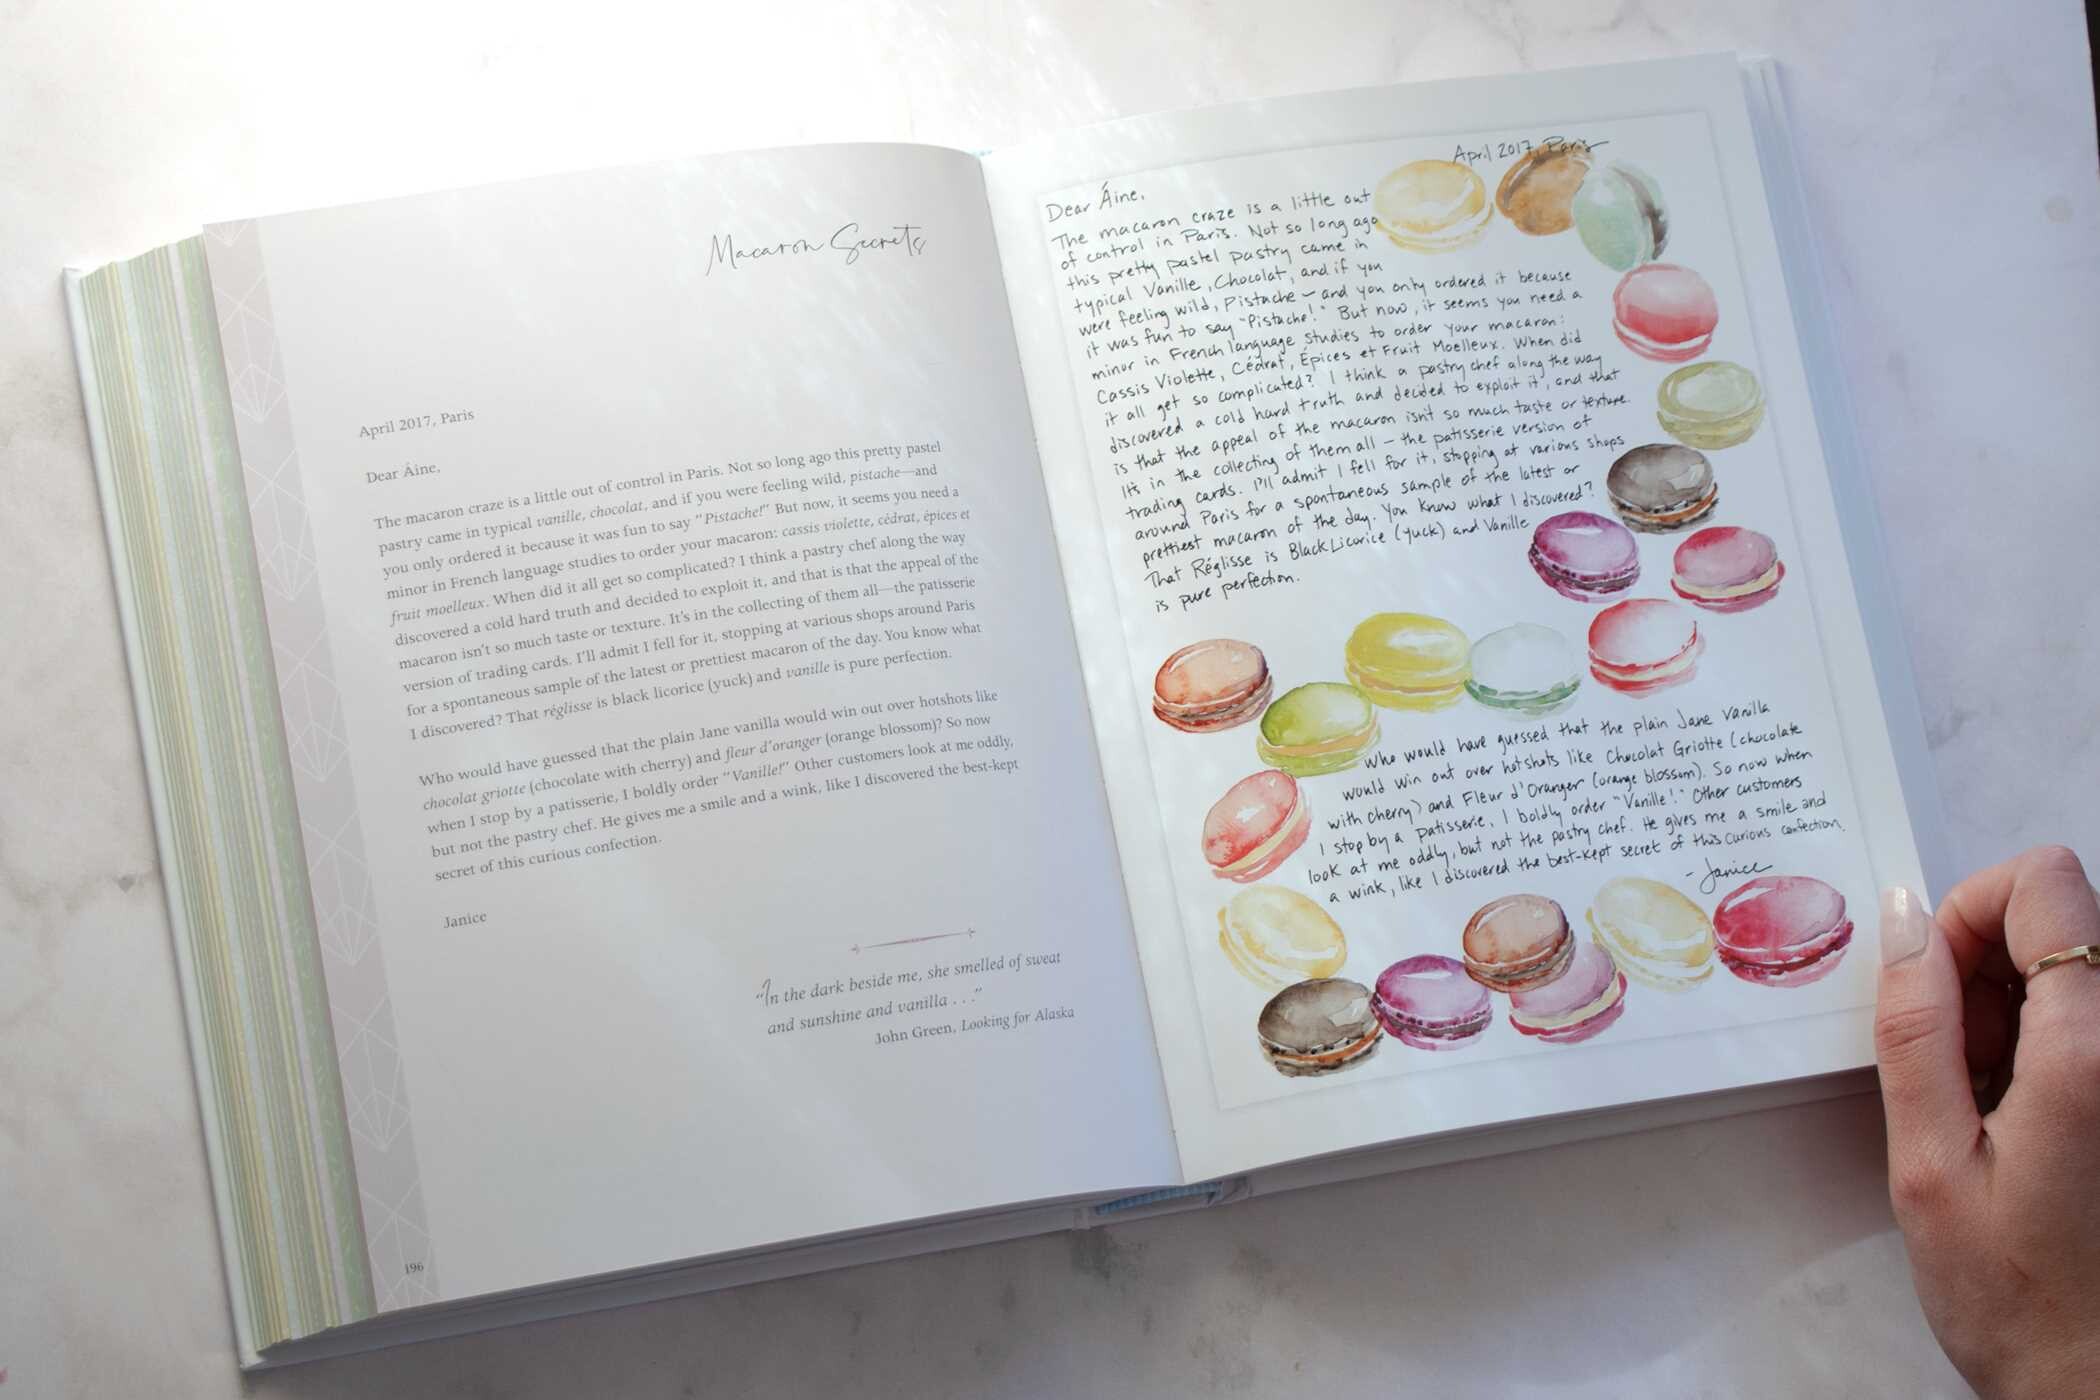 Macaron Secrets
April 2017, Paris
Dear Áine,
The macaron craze is a little out of control in Paris. Not so long ago this pretty pastel
pastry came in typical vanille, chocolat, and if you were feeling wild, pistache—and
you only ordered it because it was fun to say “Pistache!” But now, it seems you need a
minor in French language studies to order your macaron: cassis violette, cédrat, épices et
fruit moelleux. When did it all get so complicated? I think a pastry chef along the way
discovered a cold hard truth and decided to exploit it, and that is that the appeal of the
macaron isn’t so much taste or texture. It’s in the collecting of them all—the patisserie
version of trading cards. I’ll admit I fell for it, stopping at various shops around Paris
for a spontaneous sample of the latest or prettiest macaron of the day. You know what
I discovered? That réglisse is black licorice (yuck) and vanille is pure perfection.
Who would have guessed that the plain Jane vanilla would win out over hotshots like
chocolat griotte (chocolate with cherry) and fleur d’oranger (orange blossom)? So now
when I stop by a patisserie, I boldly order “Vanille!” Other customers look at me oddly,
but not the pastry chef. He gives me a smile and a wink, like I discovered the best-kept
secret of this curious confection.
Janice
“In the dark beside me, she smelled of sweat
and sunshine and vanilla . . .”
John Green, Looking for Alaska
196
April 2017, Paris
Dear Áine,
The macaron craze is a little out
of control in Paris. Not so long ago
this pretty pastel pastry came in
typical Vanille, Chocolat, and if you
were feeling wild, Pistache – and you only ordered it because
it was fun to say "Pistache!" But now, it seems you need a
minor in French language studies to order your macaron:
Cassis Violette, Cédrat, Épices et Fruit Moelleux. When did
it all get so complicated? I think a pastry chef along the way
discovered a cold hard truth and decided to exploit it, and that
is that the appeal of the macaron isn't so much taste or texture.
It's in the collecting of them all – the patisserie version of
trading cards. I'll admit I fell for it, stopping at various shops
around Paris for a spontaneous sample of the latest or
prettiest macaron of the day. You know what I discovered?
That Réglisse is Black Licorice (yuck) and Vanille
is pure perfection.
Who would have guessed that the plain Jane Vanilla
would win out over hotshots like Chocolat Griotte (chocolate
with cherry) and Fleur d'Oranger (orange blossom). So now when
I stop by a patisserie, I boldly order "Vanille!" Other customers
look at me oddly, but not the pastry chef. He gives me a smile and
a wink, like I discovered the best-kept secret of this curious confection.
- Janice